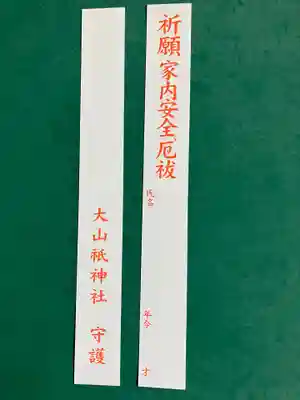 祈願家内安全厄祓
氏名
年令
才
大山祇神社 守護